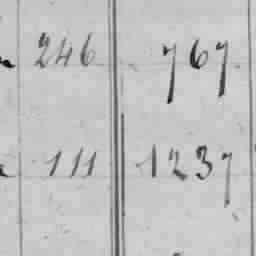 246 767
111 1237